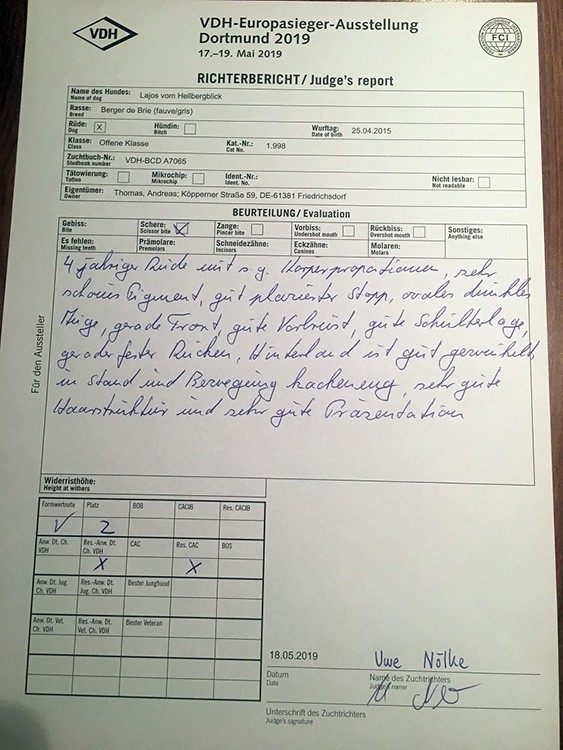 VDH
VDH-Europasieger-Ausstellung
Dortmund 2019
17.–19. Mai 2019
FCI
RICHTERBERICHT / Judge's report
Name des Hundes: Lajos vom Hellbergblick
Name of dog
Rasse: Berger de Brie (fauve/gris)
Breed
Rüde: X Hündin: Wurftag: 25.04.2015
Dog Bitch Date of birth
Klasse: Offene Klasse Kat.-Nr.: 1.998
Class Cat No.
Zuchtbuch-Nr.: VDH-BCD A7065
Studbook number
Tätowierung: Mikrochip: Ident.-Nr.: Nicht lesbar:
Tattoo Mikrochip: Ident. No. Not readable
Eigentümer: Thomas, Andreas; Köpperner Straße 59, DE-61381 Friedrichsdorf
Owner
BEURTEILUNG / Evaluation
Gebiss: Schere: Zange: Vorbiss: Rückbiss: Sonstiges:
Bite Scissor bite Pincer bite Undershot mouth Overshot mouth Anything else
Es fehlen: Prämolare: Schneidezähne: Eckzähne: Molaren:
Missing teeth Premolars Incisors Canines Molars
Für den Aussteller
4 jähriger Rüde mit s.g. Körperproportionen, sehr
schönes Pigment, gut plazierter Stopp, ovales dunkles
Auge, gerade Front, gute Vorbrust, gute Schulterlage,
gerader fester Rücken, Hinterhand ist gut gewinkelt
in Stand und Bewegung hackeneng, sehr gute
Haarstruktur und sehr gute Präsentation
Widerristhöhe:
Height at withers
Formwertnote Platz BOB CACIB Res. CACIB
V 2
Anw. Dt. Ch. VDH Res.-Anw. Dt. Ch. VDH CAC Res. CAC BOS
X X
Anw. Dt. Jug. Ch. VDH Res.-Anw. Dt. Jug. Ch. VDH Bester Junghund
Anw. Dt. Vet. Ch. VDH Res.-Anw. Dt. Vet. Ch. VDH Bester Veteran
18.05.2019 Uwe Nölke
Datum Name des Zuchtrichters
Date Judge's name
Unterschrift des Zuchtrichters
Judge's signature